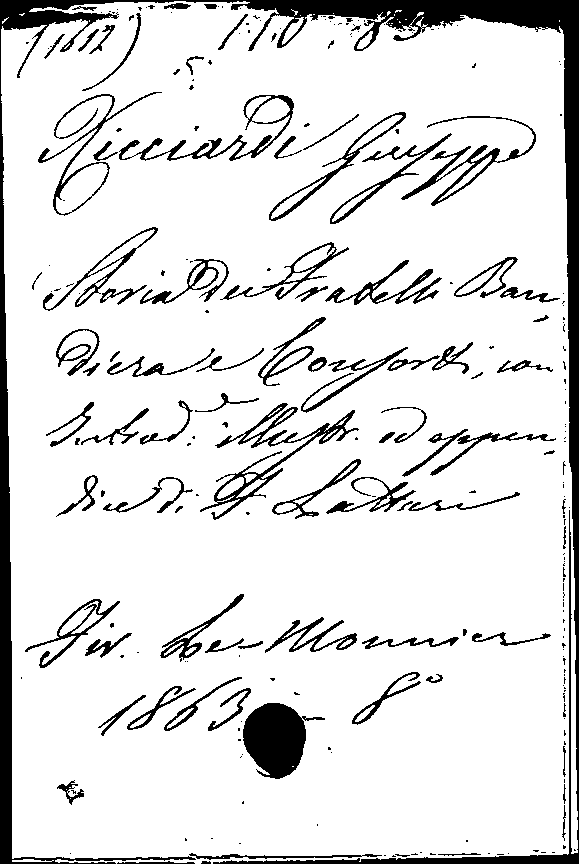 (1612) 110. 83
Ricciardi Giuseppe
Storia dei Fratelli Ban-
diera e Consorti, con
Introd: illustr. ed appen-
dice di F. Lattari
Fir. Le-Monnier
1863 - 8°